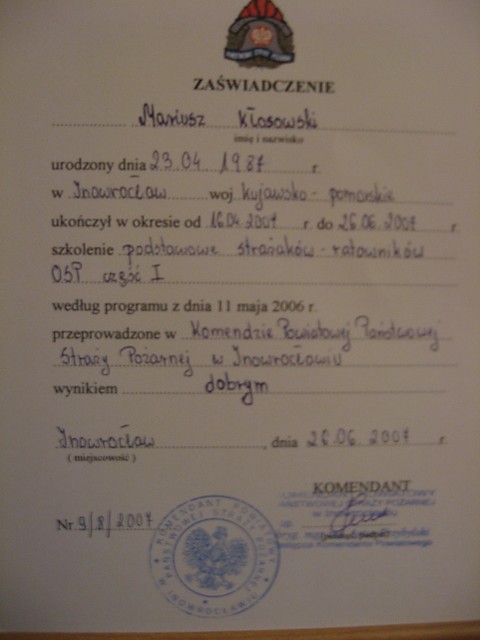 ZAŚWIADCZENIE
Mariusz Kłosowski
imię i nazwisko
urodzony dnia 23.04 1987 r.
w Inowrocław woj. kujawsko-pomorskie
ukończył w okresie od 16.04 2007 r. do 26.06.2007 r.
szkolenie podstawowe strażaków-ratowników
OSP część I
według programu z dnia 11 maja 2006 r.
przeprowadzone w Komendzie Powiatowej Państwowej
Straży Pożarnej w Inowrocławiu
wynikiem dobrym
Inowrocław, dnia 26.06.2007 r.
( miejscowość )
KOMENDANT
PAŃSTWOWEJ STRAŻY POŻARNEJ
Nr 9/8/2007
Komendanta Powiatowego
KOMENDANT POWIATOWY PAŃSTWOWEJ STRAŻY POŻARNEJ W INOWROCŁAWIU